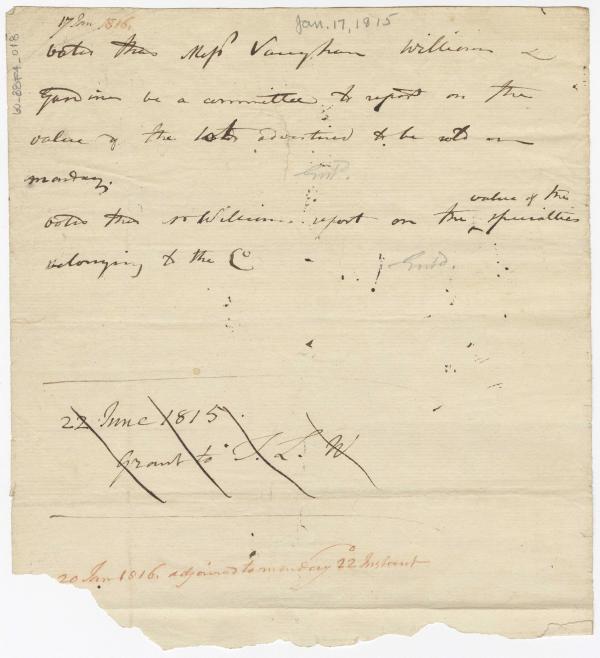 17 Jan 1816.
Jan. 17, 1815
60-88F4_018
Voted that Messrs Vaughan Williams &
Gardiner be a committee to report on the
value of the lots advertised to be sold on
monday.
Entd.
value of the
voted that Mr Williams report on the ‸ specialties
belonging to the Co
Entd.
22 June 1815.
Grant to T. L. W
20 Jan 1816. adjourned to monday 22 Instant